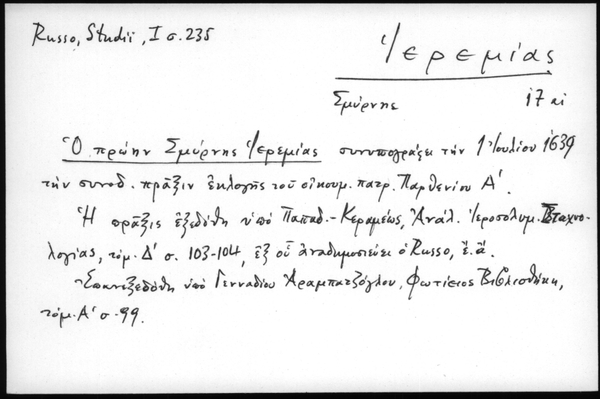 Russo, Studii, I σ. 235
Ἱερεμίας
Σμύρνης 17 αἰ
Ὁ πρώην Σμύρνης Ἱερεμίας συνυπογράφει τὴν 1 Ἰουλίου 1639
τὴν συνοδ. πρᾶξιν ἐκλογῆς τοῦ οἰκουμ. πατρ. Παρθενίου Α΄.
Ἡ πρᾶξις ἐξεδόθη ὑπὸ Παπαδ.-Κεραμέως, Ἀνάλ. Ἱεροσολυμ. Σταχυο-
λογίας, τόμ. Δ΄ σ. 103-104, ἐξ οὗ ἀναδημοσιεύει ὁ Russo, ἔ.ἀ.
Ἐπανεξεδόθη ὑπὸ Γενναδίου Ἀραμπατζόγλου, Φωτίειος Βιβλιοθήκη,
τόμ. Α΄ σ. 99.